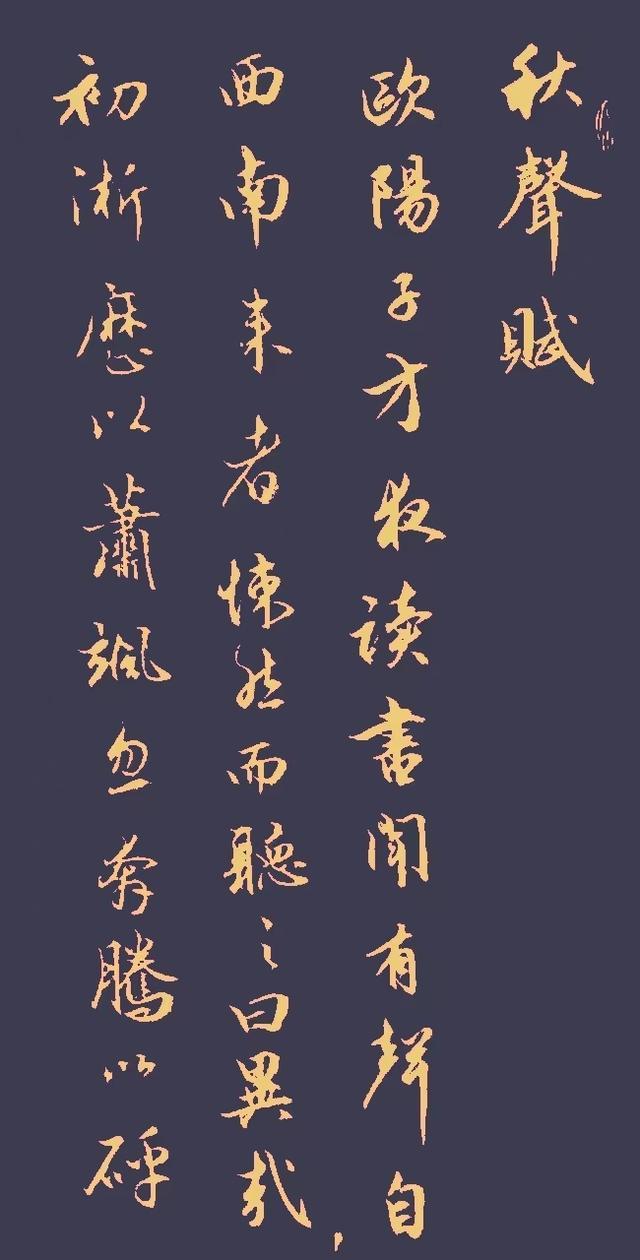 秋聲賦
歐陽子方夜读書聞有聲自
西南来者悚然而聽之曰異哉
初淅歷以蕭颯忽奔騰以砰